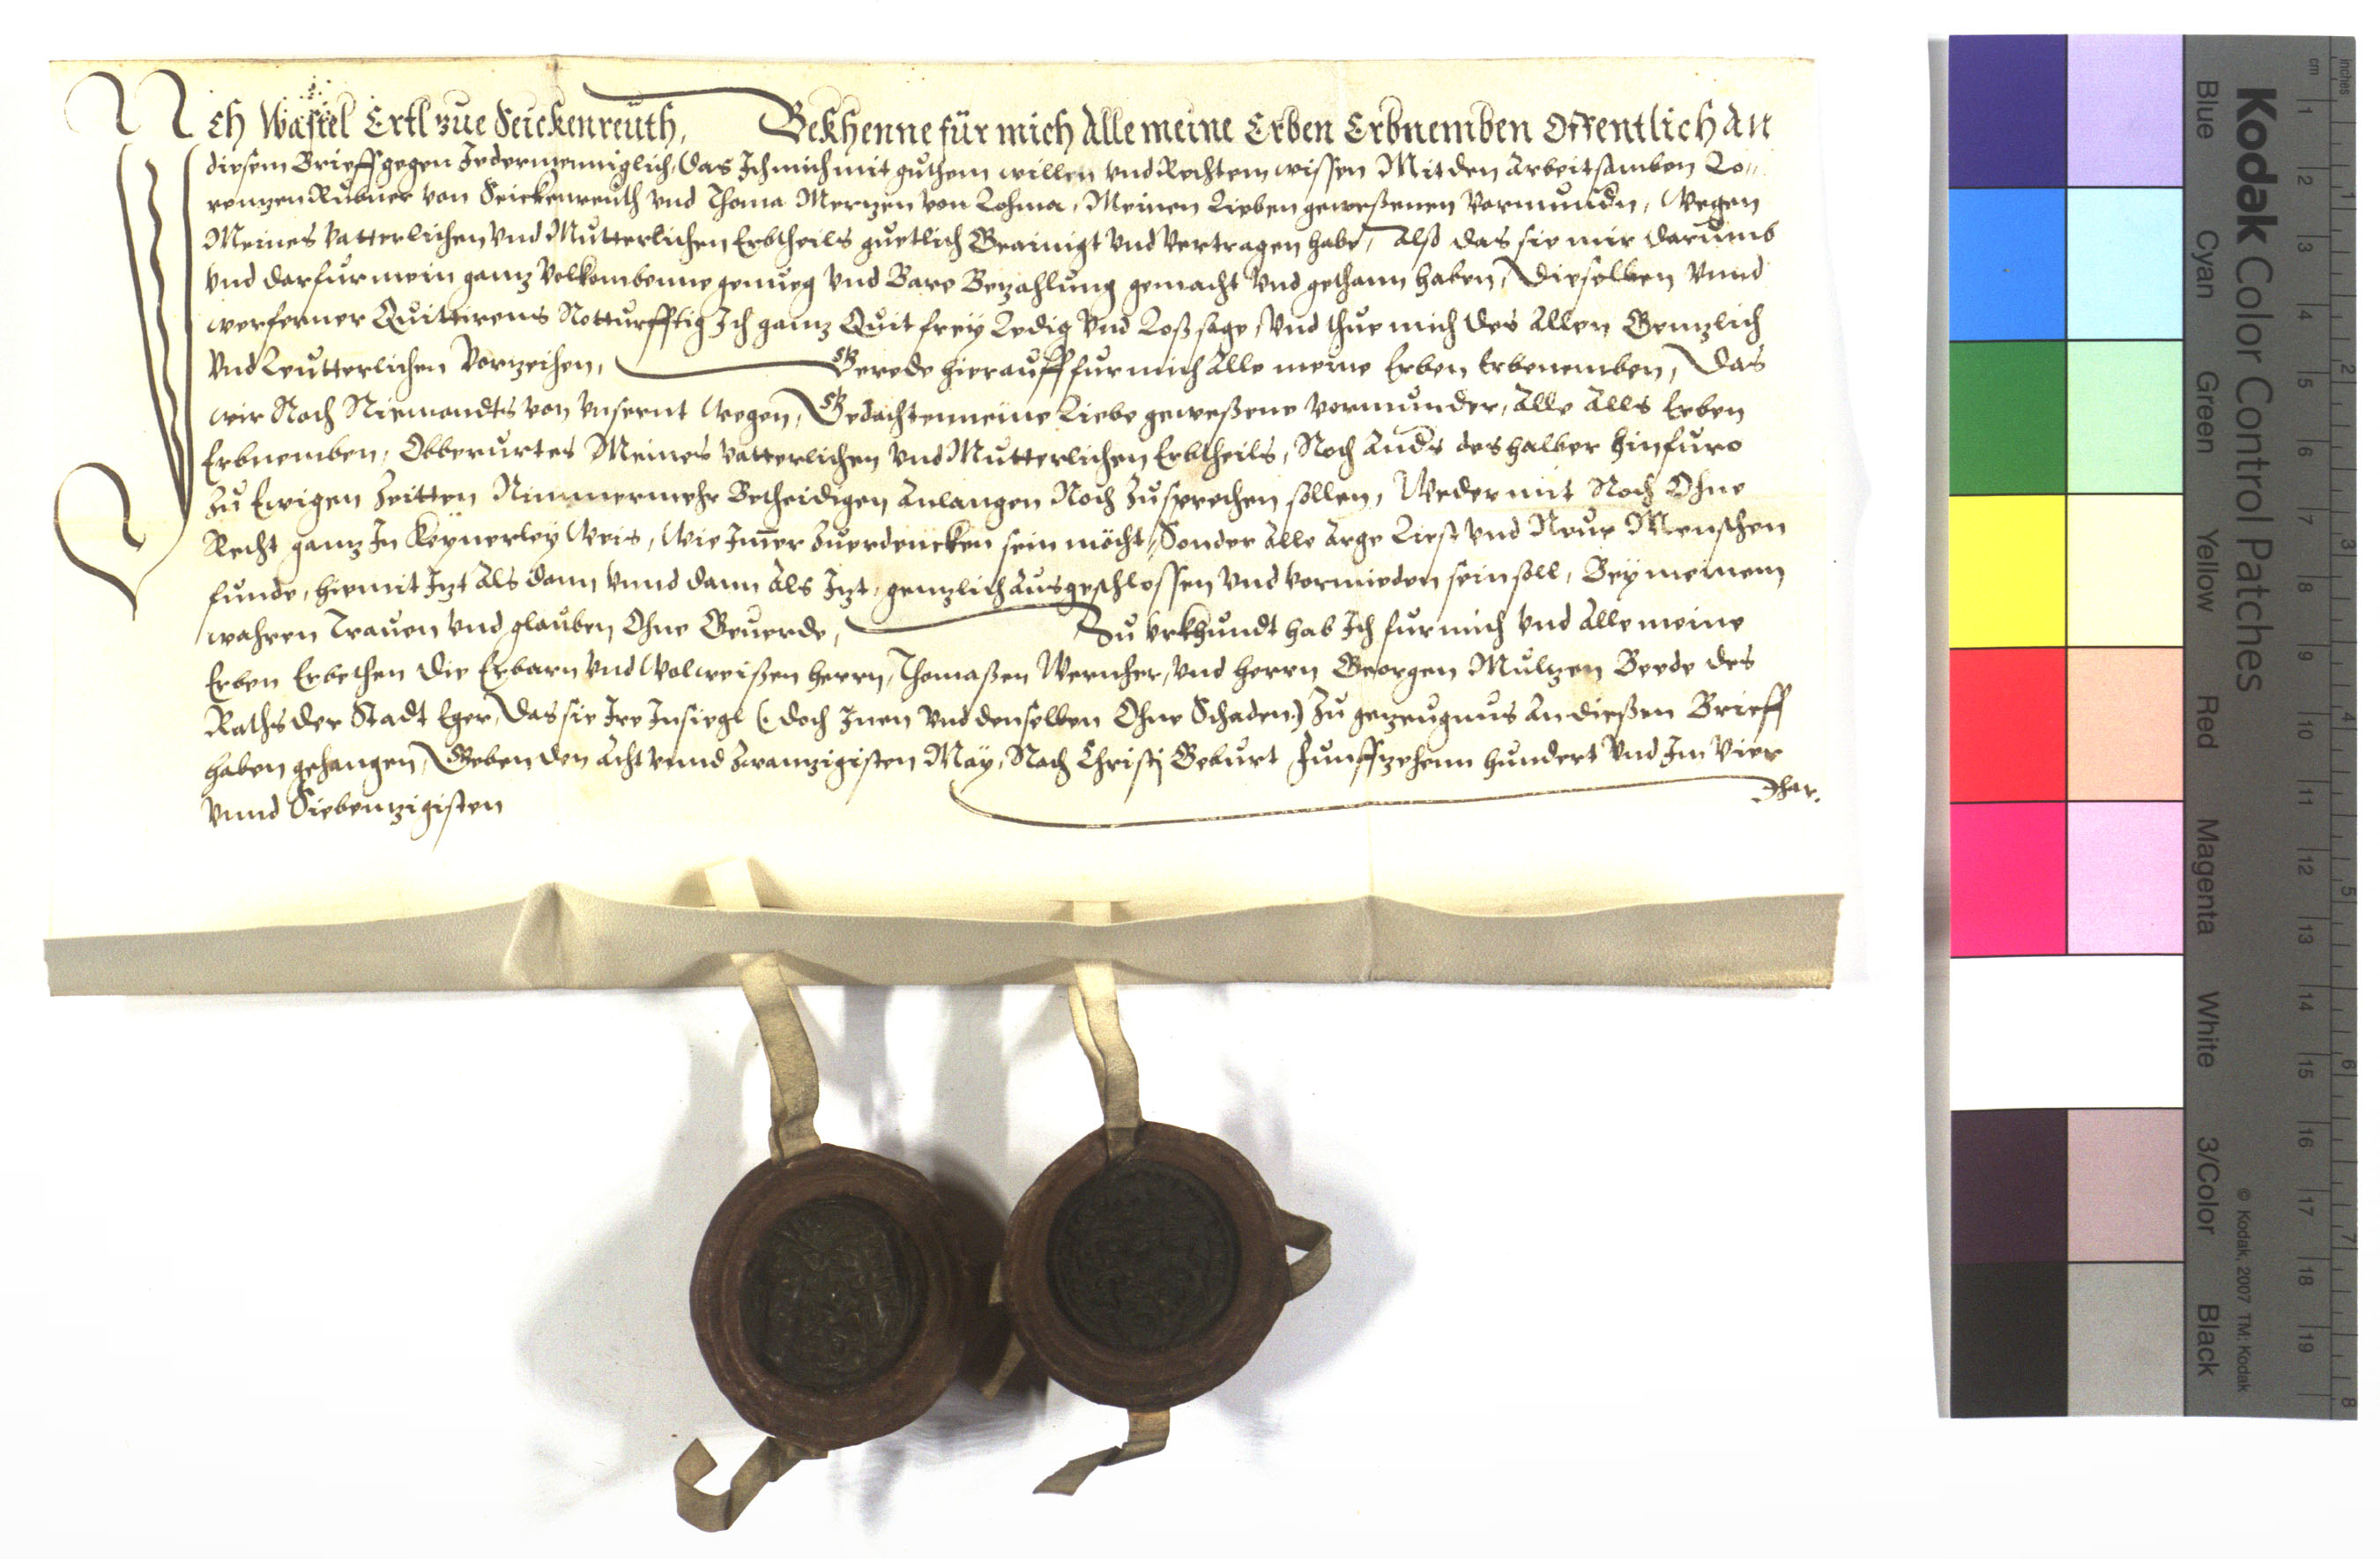 Ich Wastel Ertl zue Seickenreuth, Bekhenne für mich Alle meine Erben Erbnemben Offentlich An
diesem Brieff gegen Jedermenniglich, Das Ich mich mit guthem willen vnd Rechtem wissen Mit den Arbeitsamben Lo„
rentzen Rubner von Seickenreuth vnd Thoma Mertzen von Lohma, Meinen Lieben geweßenen Vormundn, Wegen
Meines Vatterlichen vnd Mutterlichen Erbtheils guetlich Geainigt vnd Vertragen habe, Alß das sie mir darumb
vnd darfur mein gantz Volkombenne genueg vnd Bare Bezahlung gemacht vnd gethann haben, Dieselben vnnd
wer ferner Quittirens Notturfftig Ich gantz Quit freÿ Ledig vnd Loß sage, vnd thue mich des Allen Gentzlich
vnd Leutterlichen Vorzeihen, Gerede hierauff fur mich Alle meine Erben Erbenemben, Das
wir Noch Niemandts von vnsernt Wegen, Gedachten meine Liebe geweßene Vormunder, Alle Alls Erben
Erbnemben, Obberurtes Meines Vatterlichen vnd Mutterlichen Erbtheils, Noch Ands deshalber hinfuro
Zu Ewigen Zeitten Nimmermehr Betheidigen Anlangen Noch Zusprechen sollen, Weder mit Noch Ohne
Recht gantz In Keÿnerleÿ Weis, Wie Im̄er Zuerdencken sein möcht, Sonder Alle Arge List vnd Neue Menschen
funde, hiemit Jtzt Als dann vnnd dann Als Jtzt, gentzlich Ausgeschlossen vnd vermieden sein soll, Beÿ meinem
wahren Trauen vnd glauben Ohne Geuerde, Zu Vrkhundt hab Ich fur mich vnd Alle meine
Erben Erbethen die Erbarn vnd Wolweißen herrn, Thomaßen Wernher, vnd herrn Georgen Multzen Beede des
Raths der Stadt Eger, Das sie Ire Insiegl (: doch Inen vnd denselben Ohne Schaden:) Zu gezeugnus An dießen Brieff
haben gehangen, Geben den Acht vnnd Zwanzigisten Maÿ, Nach Christj Geburt Funffzehenn hundert vnd Im Vier
vnnd Siebenzigisten Jhar.
Kodak Color Control Patches
Blue Cyan Green Yellow Red Magenta White 3/Color Black
© Kodak, 2007 TM: Kodak
cm 1 2 3 4 5 6 7 8 9 10 11 12 13 14 15 16 17 18 19
inches 1 2 3 4 5 6 7 8